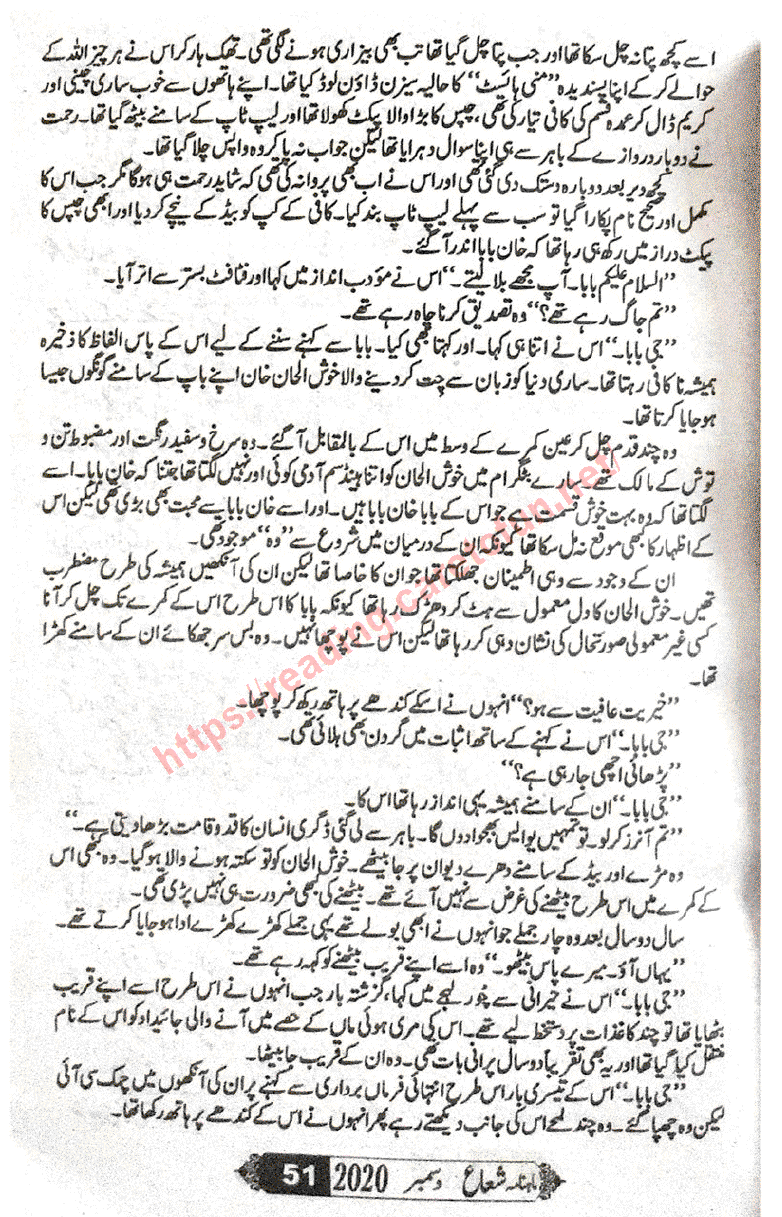 اسے کچھ پتا نہ چل سکا تھا اور جب پتا چل گیا تھا تب بھی بیزاری ہونے لگی تھی۔ تھک ہار کر اس نے ہر چیز اللہ کے
حوالے کر کے اپنا پسندیدہ ”منی ہائیسٹ“ کا حالیہ سیزن ڈاؤن لوڈ کیا تھا۔ اپنے ہاتھوں سے خوب ساری چینی اور
کریم ڈال کر عمدہ قسم کی کافی تیار کی تھی، چپس کا بڑا والا پیکٹ کھولا تھا اور لیپ ٹاپ کے سامنے بیٹھ گیا تھا۔ رحمت
نے دوبارہ دروازے کے باہر سے ہی اپنا سوال دہرایا تھا لیکن جواب نہ پا کر وہ واپس چلا گیا تھا۔
کچھ دیر بعد دوبارہ دستک دی گئی تھی اور اس نے اب بھی پروا نہ کی تھی کہ شاید رحمت ہی ہوگا مگر جب اس کا
مکمل اور صحیح نام پکارا گیا تو سب سے پہلے لیپ ٹاپ بند کیا۔ کافی کے کپ کو بیڈ کے نیچے کر دیا اور ابھی چپس کا
پیکٹ دراز میں رکھ ہی رہا تھا کہ خان بابا اندر آ گئے۔
”السلام علیکم بابا۔ آپ مجھے بلا لیتے۔“ اس نے مؤدب انداز میں کہا اور فٹافٹ بستر سے اتر آیا۔
”تم جاگ رہے تھے؟“ وہ تصدیق کرنا چاہ رہے تھے۔
”جی بابا۔“ اس نے اتنا ہی کہا۔ اور کہتا بھی کیا۔ بابا سے کہنے سننے کے لیے اس کے پاس الفاظ کا ذخیرہ
ہمیشہ ناکافی رہتا تھا۔ ساری دنیا کو زبان سے چت کر دینے والا خوش الحان خان اپنے باپ کے سامنے گونگوں جیسا
ہو جایا کرتا تھا۔
وہ چند قدم چل کر عین کمرے کے وسط میں اس کے بالمقابل آ گئے۔ وہ سرخ و سفید رنگت اور مضبوط تن و
توش کے مالک تھے۔ سارے بٹگرام میں خوش الحان کو اتنا ہینڈسم آدمی کوئی اور نہیں لگتا تھا جتنا کہ خان بابا۔ اسے
لگتا تھا کہ وہ بہت خوش قسمت ہے جو اس کے بابا خان بابا ہیں۔ اور اسے خان بابا سے محبت بھی بڑی تھی لیکن اس
کے اظہار کا کبھی موقع نہ مل سکا تھا کیونکہ ان کے درمیان میں شروع سے ”وہ“ موجود تھی۔
ان کے وجود سے وہی اطمینان جھلکتا تھا جو ان کا خاصا تھا لیکن ان کی آنکھیں ہمیشہ کی طرح مضطرب
تھیں۔ خوش الحان کا دل معمول سے ہٹ کر دھڑک رہا تھا کیونکہ بابا کا اس طرح اس کے کمرے تک چل کر آنا
کسی غیر معمولی صورتحال کی نشان دہی کر رہا تھا لیکن اس نے پوچھا نہیں۔ وہ بس سر جھکائے ان کے سامنے کھڑا
تھا۔
”خیریت عافیت سے ہو؟“ انہوں نے اسکے کندھے پر ہاتھ رکھ کر پوچھا۔
”جی بابا۔“ اس نے کہنے کے ساتھ اثبات میں گردن بھی ہلائی تھی۔
”پڑھائی اچھی جا رہی ہے؟“
”جی بابا۔“ ان کے سامنے ہمیشہ یہی انداز رہا تھا اس کا۔
”تم آنرز کر لو۔ تو تمہیں یو ایس بھجوا دوں گا۔ باہر سے لی گئی ڈگری انسان کا قد و قامت بڑھا دیتی ہے۔“
وہ مڑے اور بیڈ کے سامنے دھرے دیوان پر جا بیٹھے۔ خوش الحان کو تو سکتہ ہونے والا ہو گیا۔ وہ کبھی اس
کے کمرے میں اس طرح بیٹھنے کی غرض سے نہیں آئے تھے۔ بیٹھنے کی کبھی ضرورت ہی نہیں پڑی تھی۔
سال دو سال بعد وہ چار جملے جو انہوں نے ابھی بولے تھے یہی جملے کھڑے کھڑے ادا ہو جایا کرتے تھے۔
”یہاں آؤ۔ میرے پاس بیٹھو۔“ وہ اسے اپنے قریب بیٹھنے کو کہہ رہے تھے۔
”جی بابا۔“ اس نے حیرانی سے چُور لہجے میں کہا، گزشتہ بار جب انہوں نے اس طرح اسے اپنے قریب
بٹھایا تھا تو چند کاغذات پر دستخط لیے تھے۔ اس کی مری ہوئی ماں کے حصے میں آنے والی جائیداد کو اس کے نام
منتقل کیا گیا تھا اور یہ بھی تقریباً دو سال پرانی بات تھی۔ وہ ان کے قریب جا بیٹھا۔
”جی بابا۔“ اس کے تیسری بار اس طرح انتہائی فرماں برداری سے کہنے پر ان کی آنکھوں میں چمک سی آئی
لیکن وہ چھپا گئے۔ وہ چند لمحے اس کی جانب دیکھتے رہے پھر انہوں نے اس کے کندھے پر ہاتھ رکھا تھا۔
ماہنامہ شعاع دسمبر 2020 51
https://reading.cafetofun.net/